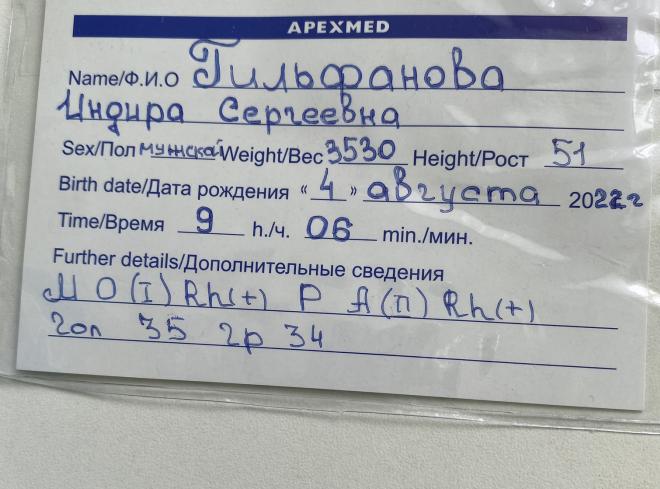 APEXMED
Name/Ф.И.О Гильфанова
Индира Сергеевна
Sex/Пол мужской Weight/Вес 3530 Height/Рост 51
Birth date/Дата рождения «4» августа 2022г
Time/Время 9 h./ч. 06 min./мин.
Further details/Дополнительные сведения
М О (I) Rh(+) Р А (II) Rh(+)
гол 35 гр 34